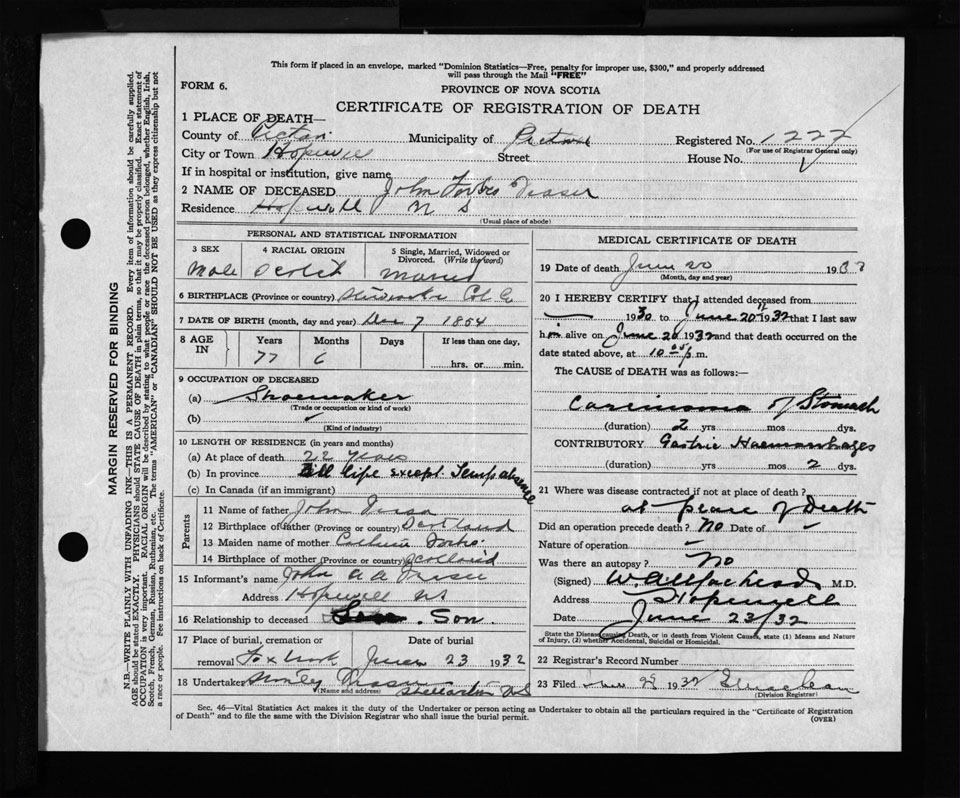 This form if placed in an envelope, marked "Dominion Statistics—Free, penalty for improper use, $300," and properly addressed
will pass through the Mail "FREE"
FORM 6.
PROVINCE OF NOVA SCOTIA
CERTIFICATE OF REGISTRATION OF DEATH
1 PLACE OF DEATH—
County of Pictou Municipality of Pictou Registered No. 1227
(For use of Registrar General only)
City or Town Hopewell Street House No.
If in hospital or institution, give name
2 NAME OF DECEASED John Forbes Fraser
Residence Hopewell N S
(Usual place of abode)
PERSONAL AND STATISTICAL INFORMATION
3 SEX 4 RACIAL ORIGIN 5 Single, Married, Widowed or
Divorced. (Write the word)
Male Scotch Married
6 BIRTHPLACE (Province or country) Col Co
7 DATE OF BIRTH (month, day and year) Dec 7 1854
8 AGE IN Years Months Days If less than one day,
77 6 hrs. or min.
9 OCCUPATION OF DECEASED
(a) Shoemaker
(Trade or occupation or kind of work)
(b)
(Kind of industry)
10 LENGTH OF RESIDENCE (in years and months)
(a) At place of death 22 years
(b) In province All life except Temp absence
(c) In Canada (if an immigrant)
Parents
11 Name of father John Fraser
12 Birthplace of father (Province or country) Scotland
13 Maiden name of mother Forbes
14 Birthplace of mother (Province or country) Scotland
15 Informant's name John A A Fraser
Address Hopewell NS
16 Relationship to deceased Son.
17 Place of burial, cremation or Date of burial
removal June 23 1932
18 Undertaker Fraser
(Name and address) Stellarton NS
MEDICAL CERTIFICATE OF DEATH
19 Date of death June 20 1932
(Month, day and year)
20 I HEREBY CERTIFY that I attended deceased from
1930 to June 20th 1932 that I last saw
him alive on June 20 1932 and that death occurred on the
date stated above, at 10 p m.
The CAUSE of DEATH was as follows:—
Carcinoma of Stomach
(duration) 2 yrs mos dys.
CONTRIBUTORY Gastric Haemorrhages
(duration) yrs mos 2 dys.
21 Where was disease contracted if not at place of death?
at place of Death
Did an operation precede death? No Date of –
Nature of operation –
Was there an autopsy? No
(Signed) M.D.
Address Hopewell
Date June 23/32
State the Disease causing Death, or in death from Violent Causes, state (1) Means and Nature
of Injury, (2) whether Accidental, Suicidal or Homicidal.
22 Registrar's Record Number
23 Filed 1932
(Division Registrar)
Sec. 46—Vital Statistics Act makes it the duty of the Undertaker or person acting as Undertaker to obtain all the particulars required in the "Certificate of Registration
of Death" and to file the same with the Division Registrar who shall issue the burial permit.
(OVER)
MARGIN RESERVED FOR BINDING
N.B.—WRITE PLAINLY WITH UNFADING INK—THIS IS A PERMANENT RECORD. Every item of information should be carefully supplied.
AGE should be stated EXACTLY. PHYSICIANS should STATE CAUSE OF DEATH in plain terms, so that it may be properly classified. Exact statement of
OCCUPATION is very important. RACIAL ORIGIN will be described by stating to what people or race the deceased person belonged, whether English, Irish,
Scotch, French, German, Russian, Ruthenian, etc. The terms "AMERICAN" or "CANADIAN" SHOULD NOT BE USED as they express citizenship but not
a race or people. Fee instructions on back of Certificate.